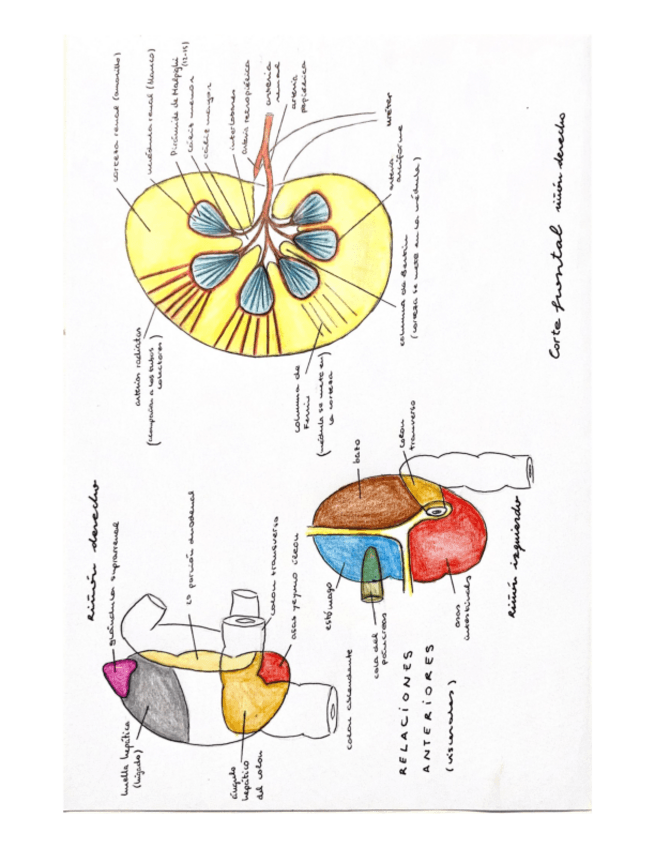 corteza renal (amarillo)
médula renal (blanco)
Pirámide de Malpighi
(12-15)
cáliz menor
cáliz mayor
interlobares
arteria retropiélica
arteria
renal
arteria
prepiélica
uréter
arteria
arciforme
columna de Bertin
(corteza se mete en la médula)
arterias radiadas
(acompañan a los tubos
colectores)
columna de
Ferrein
(médula se mete en
la corteza
Corte frontal riñón derecho
Riñón derecho
glándula suprarrenal
2ª porción duodenal
colon transverso
asas yeyuno íleon
colon ascendente
huella hepática
(hígado)
ángulo
hepático
del colon
bazo
colon
transverso
estómago
cola del
páncreas
asas
intestinales
Riñón izquierdo
RELACIONES
ANTERIORES
(viscerales)